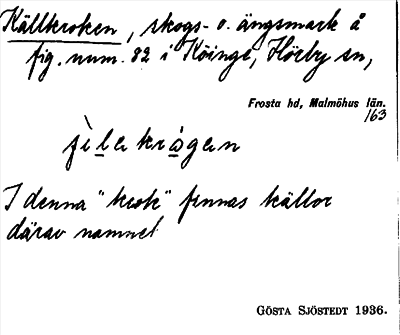 Källkroken, skogs- o. ängsmark å
fig. num. 82 i Köinge, Hörby sn,
Frosta hd, Malmöhus län.
163
jèlakrågan
I denna "krok" finnas källor
därav namnet
GÖSTA SJÖSTEDT 1936.